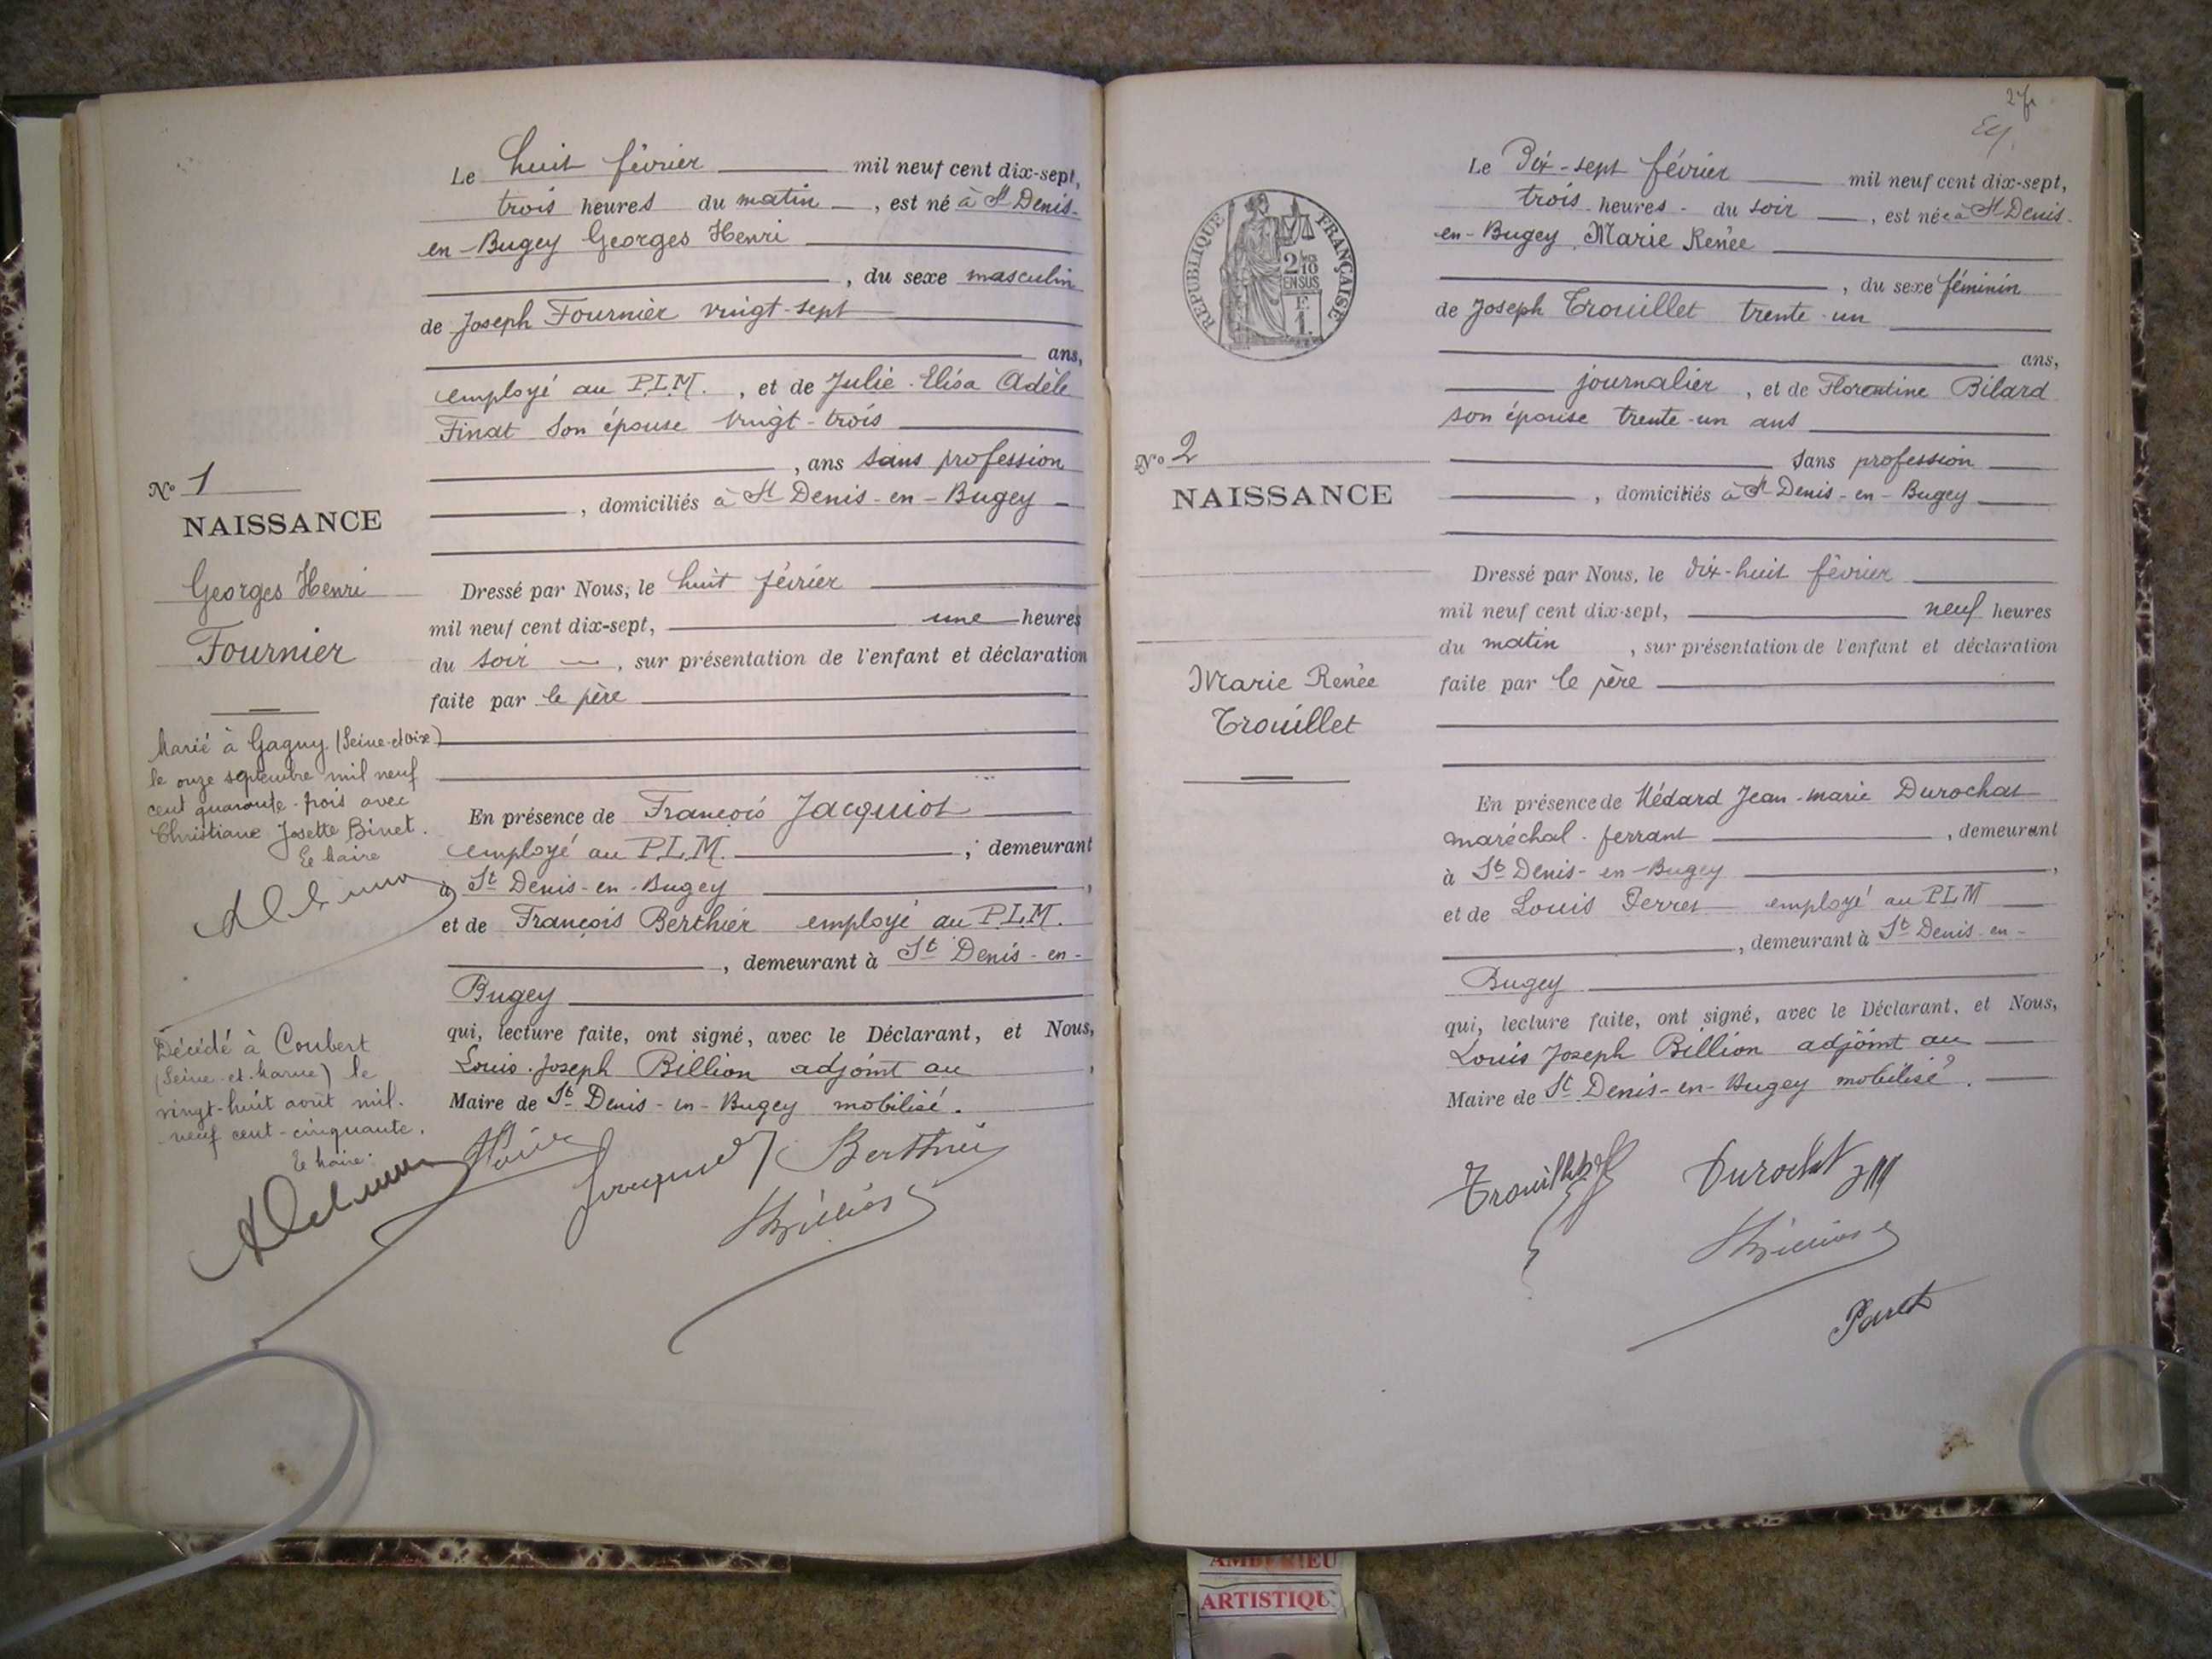 Le huit février mil neuf cent dix-sept,
trois heures du matin, est né à St Denis-
en-Bugey Georges Henri
, du sexe masculin
de Joseph Fournier vingt-sept
ans,
employé au P.L.M., et de Julie Elisa Adèle
Finat son épouse vingt-trois
, ans sans profession
, domiciliés à St Denis-en-Bugey
No 1
NAISSANCE
Georges Henri
Fournier
Dressé par Nous, le huit février
mil neuf cent dix-sept, une heures
du soir, sur présentation de l'enfant et déclaration
faite par le père
Marié à Gagny (Seine-et-Oise)
le onze septembre mil neuf
cent quarante-trois avec
Christiane Josette Binet.
Le Maire
En présence de François Jacquiot
employé au P.L.M., demeurant
à St Denis-en-Bugey,
et de François Berthier employé au P.L.M.
, demeurant à St Denis-en-
Bugey
qui, lecture faite, ont signé, avec le Déclarant, et Nous,
Louis Joseph Billion adjoint au
Maire de St Denis-en-Bugey mobilisé.
Décédé à Coubert
(Seine-et-Marne) le
vingt-huit août mil-
neuf cent-cinquante.
Le Maire.
Berthier
Billion
27
Le Dix-sept février mil neuf cent dix-sept,
trois heures du soir, est née à St Denis-
en-Bugey, Marie Renée
, du sexe féminin
de Joseph Trouillet trente-un
ans,
journalier, et de Florentine Bilard
son épouse trente-un ans
sans profession
, domiciliés à St Denis-en-Bugey
REPUBLIQUE FRANÇAISE
2/10
EN SUS
F
1.
No 2
NAISSANCE
Marie Renée
Trouillet
Dressé par Nous, le dix-huit février
mil neuf cent dix-sept, neuf heures
du matin, sur présentation de l'enfant et déclaration
faite par le père
En présence de Médard Jean-Marie Durochat
maréchal-ferrant, demeurant
à St Denis-en-Bugey,
et de Louis Perret employé au PLM
, demeurant à St Denis-en-
Bugey
qui, lecture faite, ont signé, avec le Déclarant, et Nous,
Louis Joseph Billion adjoint au
Maire de St Denis-en-Bugey mobilisé.
Trouillet Durochat JM
Billion
Perret
AMBERIEU
ARTISTIQU